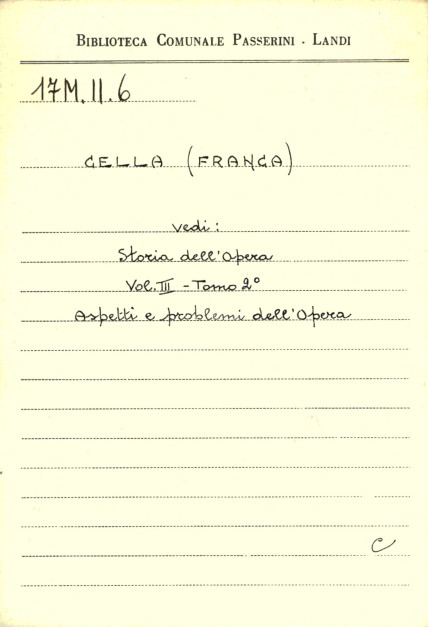 BIBLIOTECA COMUNALE PASSERINI - LANDI
17M.II.6
CELLA (FRANCA)
vedi:
Storia dell'Opera
Vol. III - Tomo 2°
Aspetti e problemi dell'Opera
C